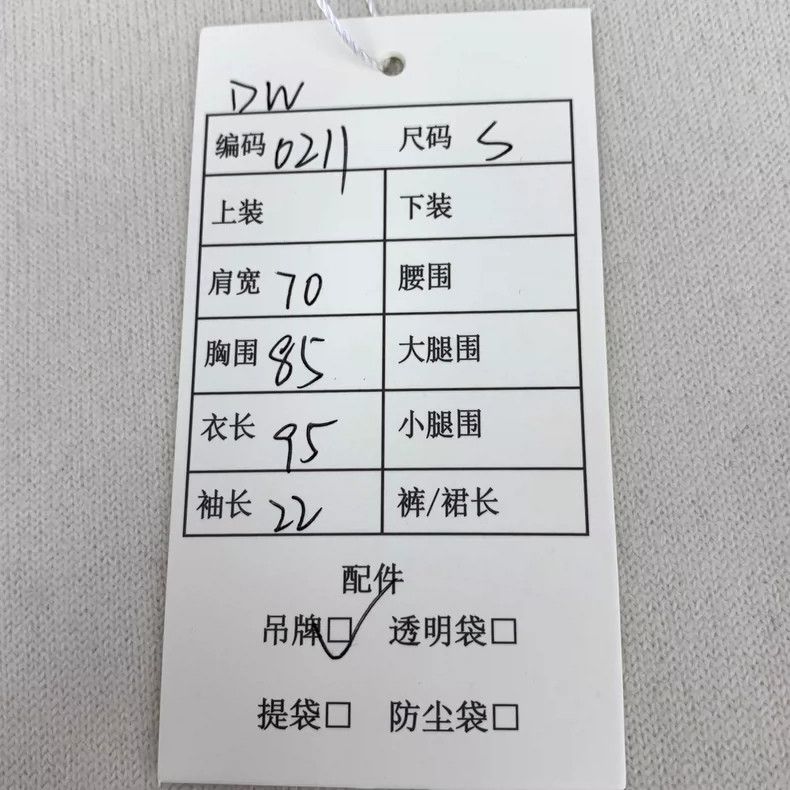 DW
编码 0211 尺码 S
上装 下装
肩宽 70 腰围
胸围 85 大腿围
衣长 95 小腿围
袖长 22 裤/裙长
配件
吊牌☑ 透明袋□
提袋□ 防尘袋□